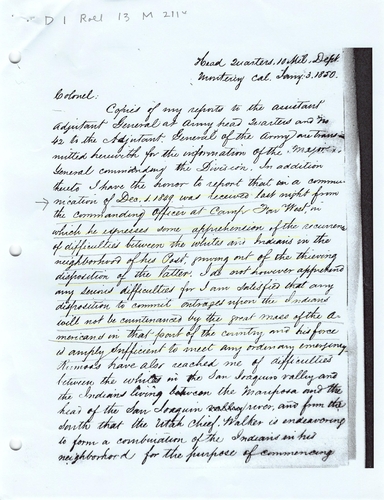 D 1 Roll 13 M 2114
Head Quarters. 10 Mil. Dept
Monterey Cal. Jany. 3. 1850.
Colonel:
Copies of my reports to the assistant
Adjutant General at Army head Quarters and No
42 to the Adjutant General of the Army are trans-
mitted herewith for the information of the Major
General commanding the Division. In addition
thereto I have the honor to report that in a commu-
nication of Dec. 1. 1849 was received last night from
the commanding Officer at Camp Far West, in
which he expresses some apprehension of the recurrence
of difficulties between the whites and Indians in the
neighborhood of his Post, growing out of the thieving
disposition of the latter. I do not however apprehend
any serious difficulties for I am satisfied that any
disposition to commit outrages upon the Indians
will not be countinanced by the great mass of the A-
mericans in that part of the country and his force
is amply sufficient to meet any ordinary emergency.
Rumors have also reached me of difficulties
between the whites in the San Joaquin valley and
the Indians living between the Mariposa and the
head of the San Joaquin river, and from the
South that the Utah Chief, Walker is endeavoring
to form a combination of the Indians in his
neighborhood for the purpose of commencing